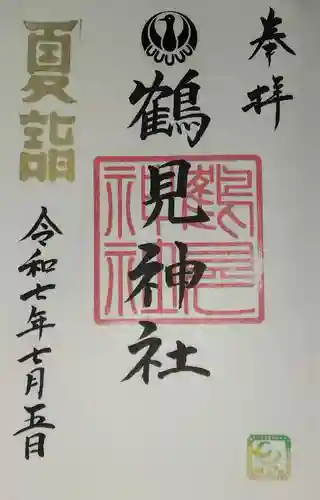 奉拝
鶴見神社
鶴見
神社
夏詣
令和七年七月五日